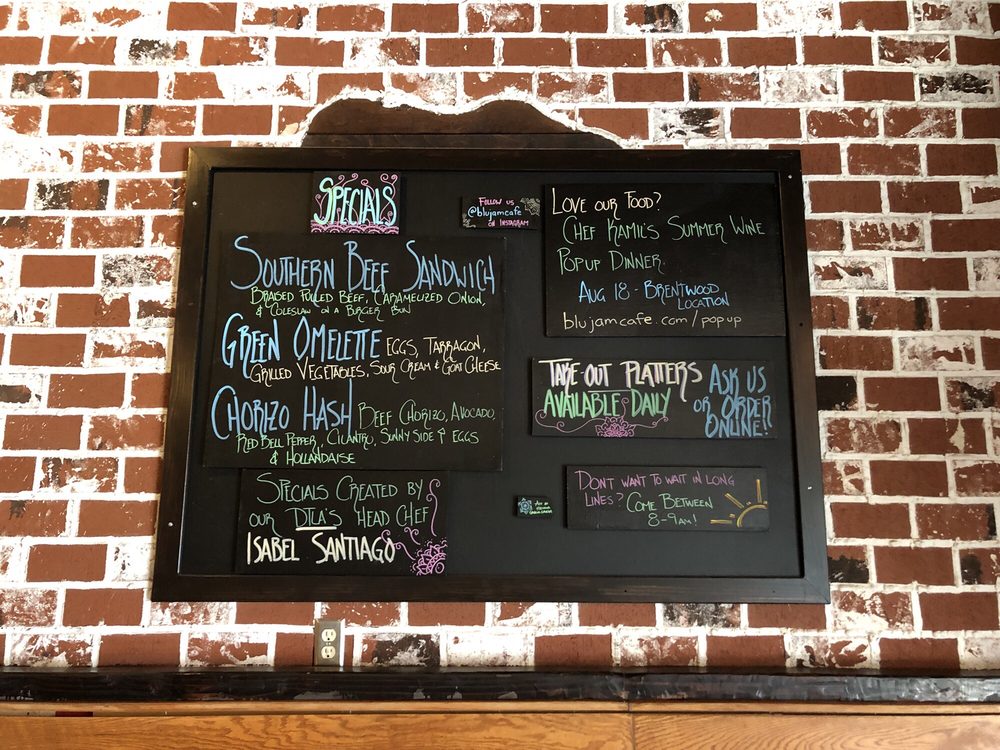 SPECIALS
SOUTHERN BEEF SANDWICH
BRAISED PULLED BEEF, CARAMELIZED ONION,
& COLESLAW ON A BURGER BUN
GREEN OMELETTE EGGS, TARRAGON,
GRILLED VEGETABLES, SOUR CREAM & GOAT CHEESE
CHORIZO HASH BEEF CHORIZO, AVOCADO,
RED BELL PEPPER, CILANTRO, SUNNY SIDE ↑ EGGS
& HOLLANDAISE
SPECIALS CREATED BY
OUR DTLA'S HEAD CHEF
ISABEL SANTIAGO
FOLLOW US
@blujamcafe
ON INSTAGRAM
LOVE OUR FOOD?
CHEF KAMIL'S SUMMER WINE
POPUP DINNER.
AUG 18 - BRENTWOOD
LOCATION
blujamcafe.com/popup
TAKE-OUT PLATTERS
AVAILABLE DAILY
ASK US
OR ORDER
ONLINE!!
DON'T WANT TO WAIT IN LONG
LINES? COME BETWEEN
8-9AM!